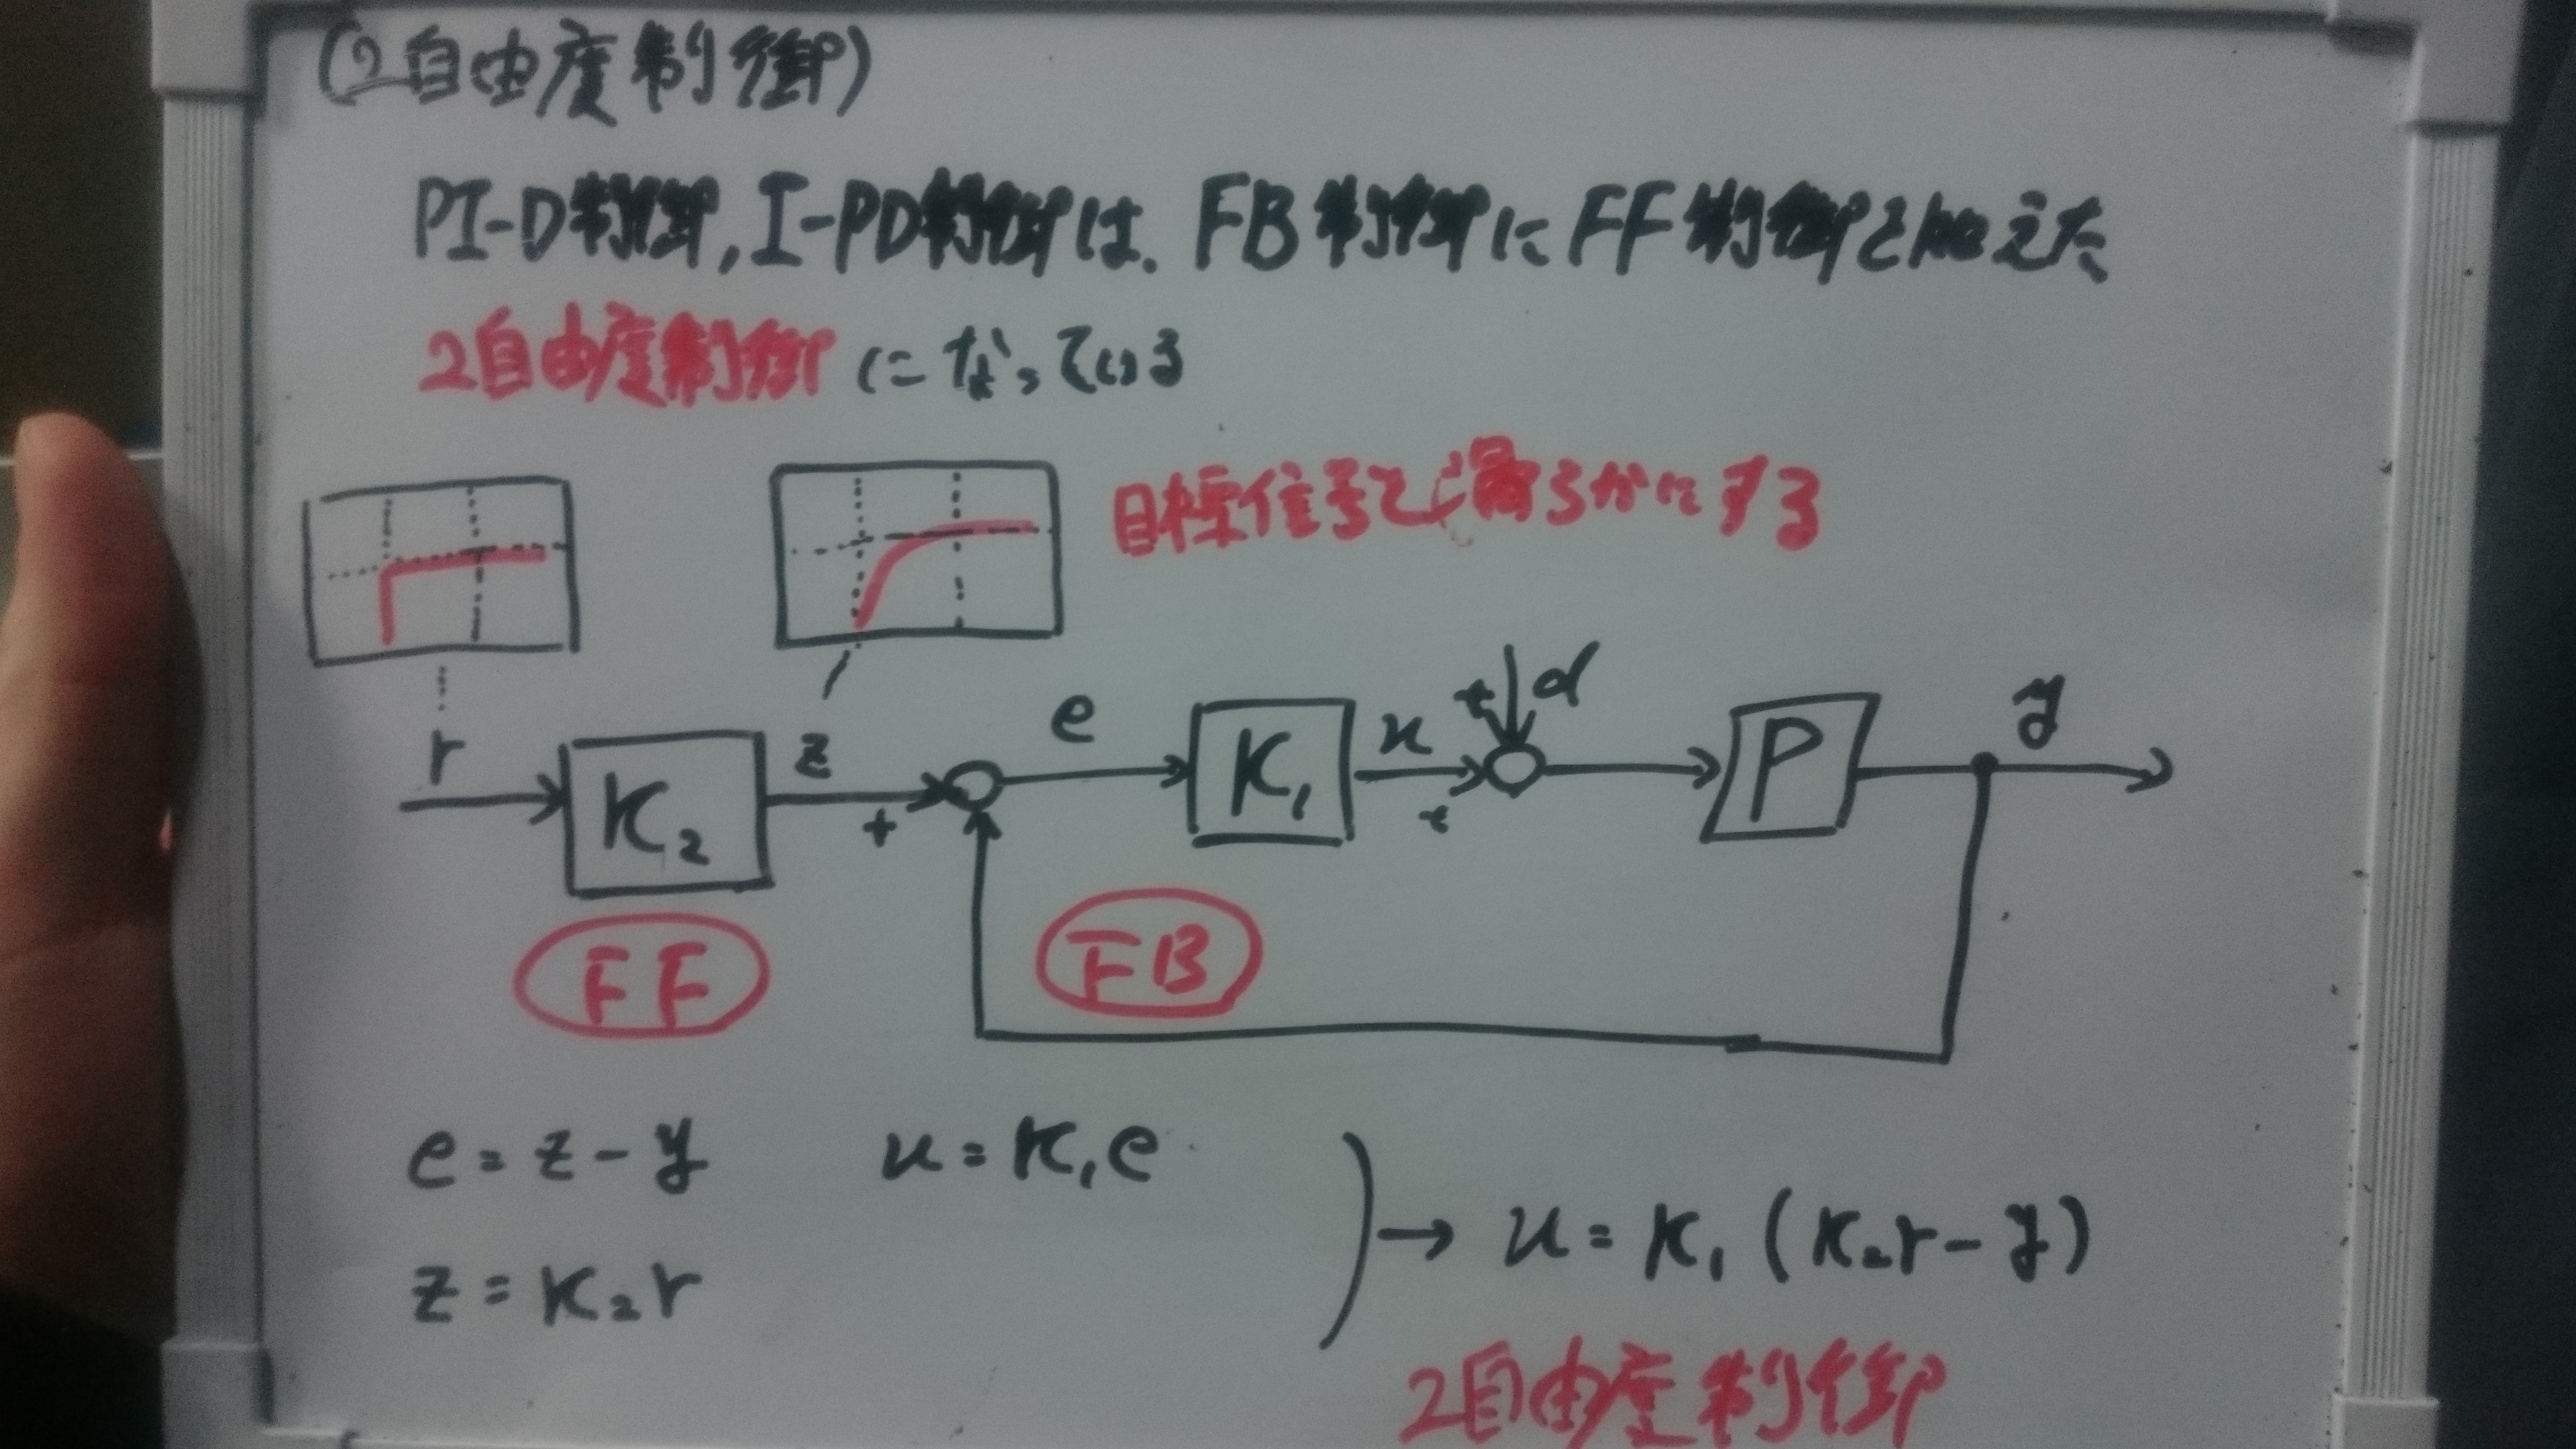 (2自由度制御)
PI-D制御,I-PD制御は、FB制御にFF制御を加えた
2自由度制御になっている
目標信号を滑らかにする
r
K₂
z
+
e
K₁
u
+
+
d
P
y
FF
FB
e=z-y
u=K₁e
z=K₂r
→ u=K₁(K₂r-y)
2自由度制御